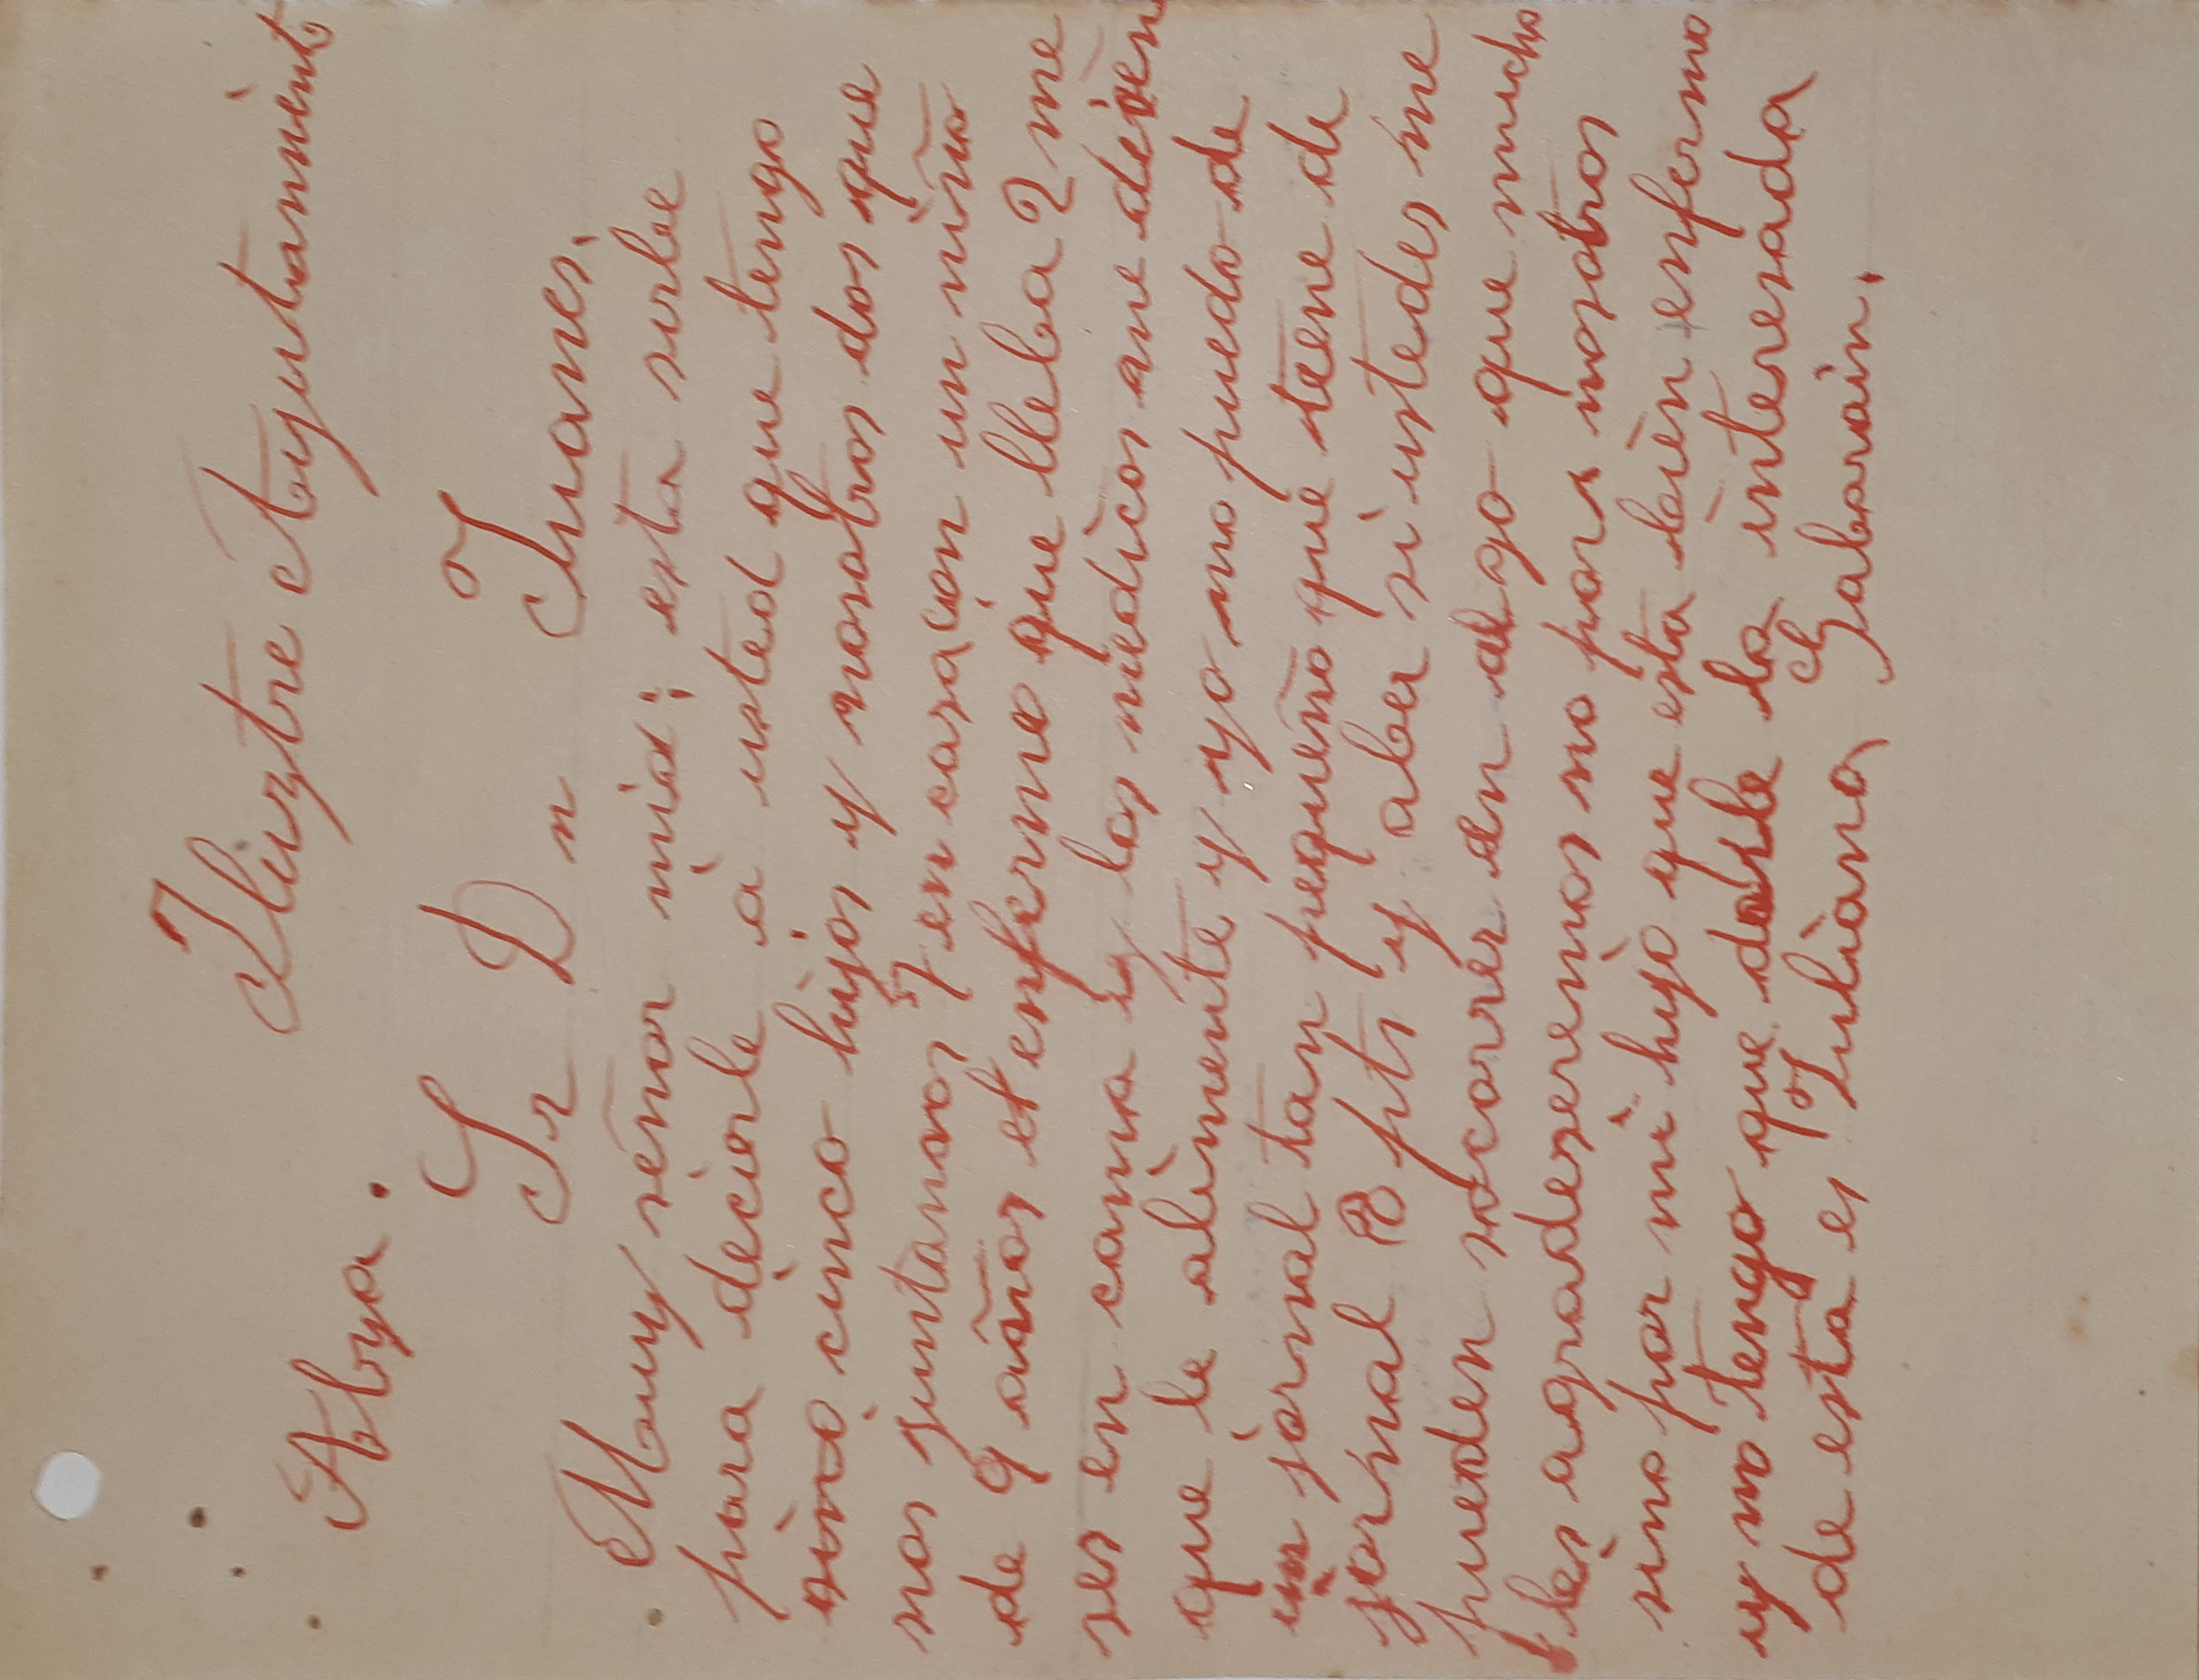 Iluztre Ayuntamiento
Alza.
Sr Dn Juanes,
Muy señor mio: esta sirbe
para decirle a usted que tengo
sino cinco hijos y nosotros dos que
nos juntamos 7 en casa con un niño
de 9 años el enfermo que lleba 2 me
ses en cama y los medicos me dicen
que le alimente y yo no puedo de
un jornal tan pequeño que tene de
jornal 8 pts y aber si ustedes me
pueden socorer en algo que mucho
les agradeseremos no por nosotros
sino por mi hijo que esta bien enfermo
y no tengo que darle la interesada
de esta es Juliana Gabarain.